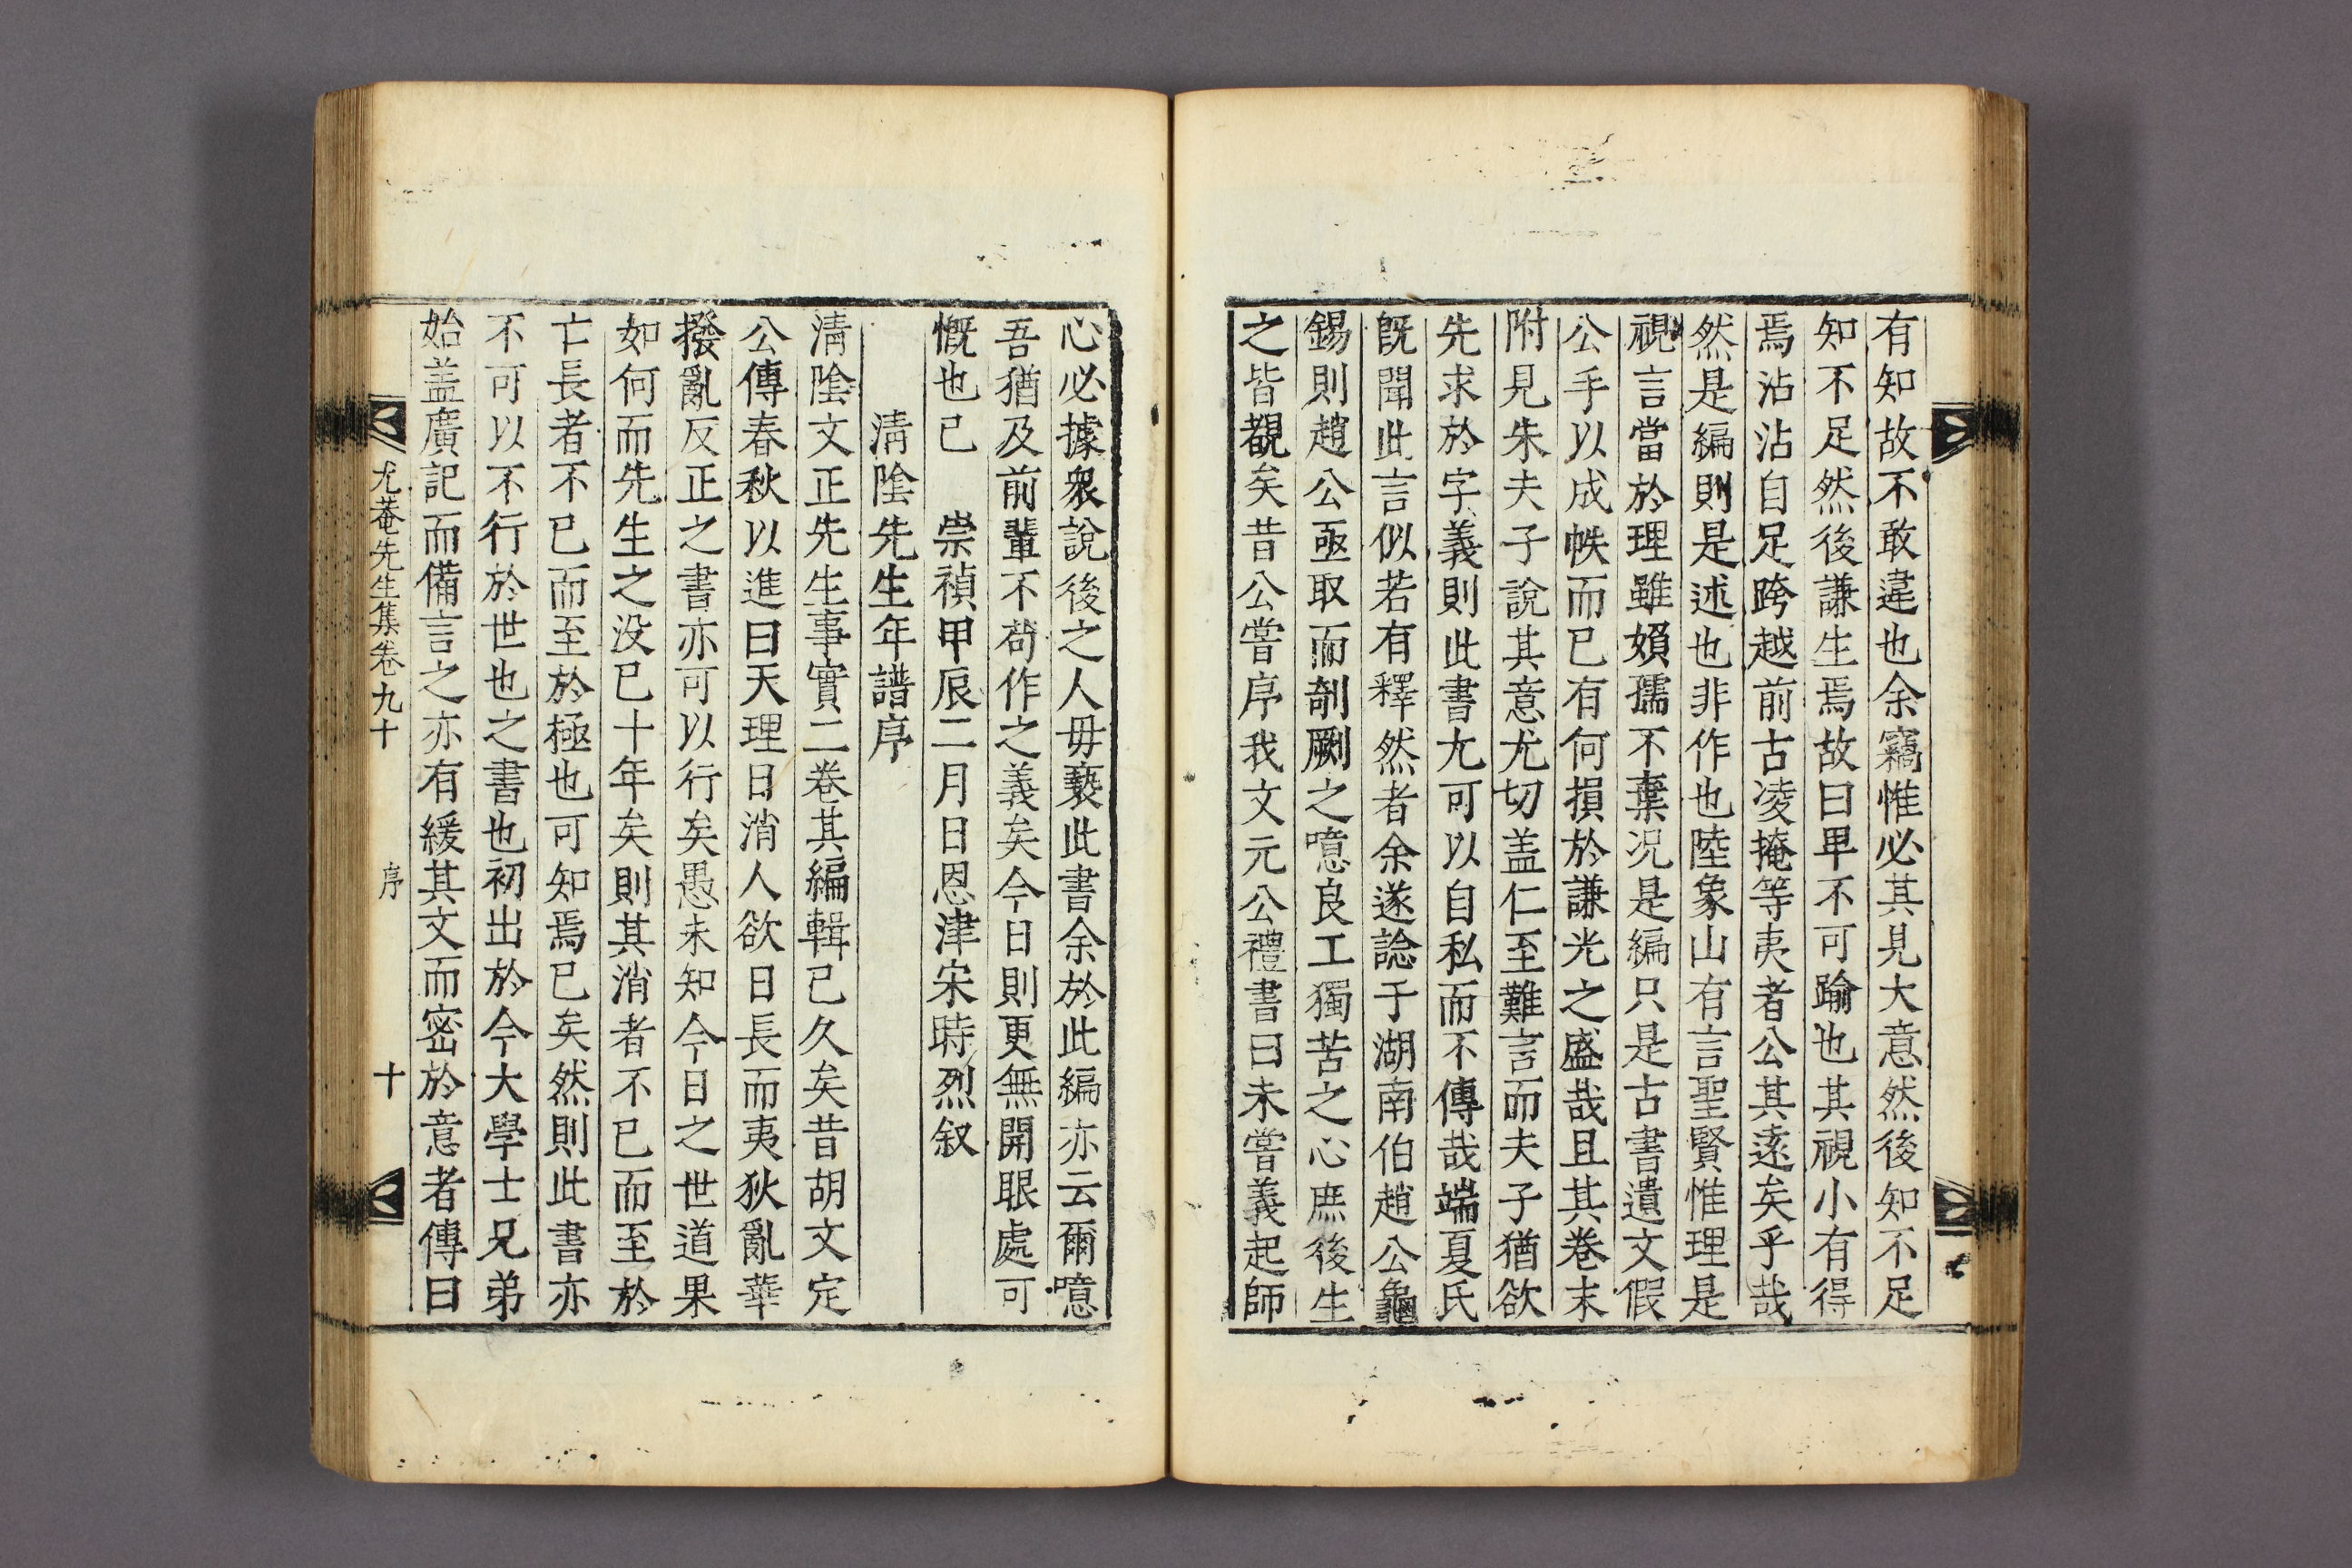 有知故不敢違也余竊惟必其見大意然後知不足
知不足然後謙生焉故曰卑不可踰也其視小有得
焉沾沾自足跨越前古凌掩等夷者公其遠矣乎哉
然是編則是述也非作也陸象山有言聖賢惟理是
視言當於理雖嬬孺不棄况是編只是古書遺文假
公手以成帙而已有何損於謙光之盛哉且其卷末
附見朱夫子說其意尤切盖仁至難言而夫子猶欲
先求於字義則此書尤可以自私而不傳哉端夏氏
旣聞此言似若有釋然者余遂諗于湖南伯趙公龜
錫則趙公亟取而剞劂之噫良工獨苦之心庶後生
之皆覩矣昔公嘗序我文元公禮書曰未嘗義起師
心必據衆說後之人毋褻此書余於此編亦云爾噫
吾猶及前輩不苟作之義矣今日則更無開眼處可
慨也已 崇禎甲辰二月日恩津宋時烈叙
淸陰先生年譜序
淸陰文正先生事實二卷其編輯已久矣昔胡文定
公傳春秋以進曰天理日消人欲日長而夷狄亂華
撥亂反正之書亦可以行矣愚未知今日之世道果
如何而先生之没已十年矣則其消者不已而至於
亡長者不已而至於極也可知焉已矣然則此書亦
不可以不行於世也之書也初出於今大學士兄弟
始盖廣記而備言之亦有緩其文而密於意者傳曰
尤菴先生集卷九十 序 十